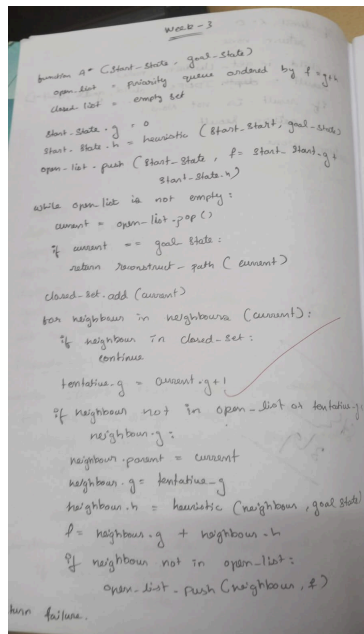 Week - 3
function A* (Start-State, goal-State)
open-list = priority queue ordered by f = g+h
closed-list = empty set
Start-State.g = 0
Start-State.h = heuristic (Start-Start, goal-State)
open-list-push (Start-State, f = Start-Start.g +
Start-State.h)
while open-list is not empty:
current = open-list.pop()
if current == goal State:
return reconstruct-path (current)
closed-set-add (current)
for neighbour in neighbours (current):
if neighbour in closed-set:
continue
tentative-g = current.g+1
if neighbour not in open-list or tentative-g
neighbour.g:
neighbour.parent = current
neighbour.g = tentative-g
neighbour.h = heuristic (neighbour, goal State)
f = neighbour.g + neighbour.h
if neighbour not in open-list:
open-list-push (neighbour, f)
turn failure.